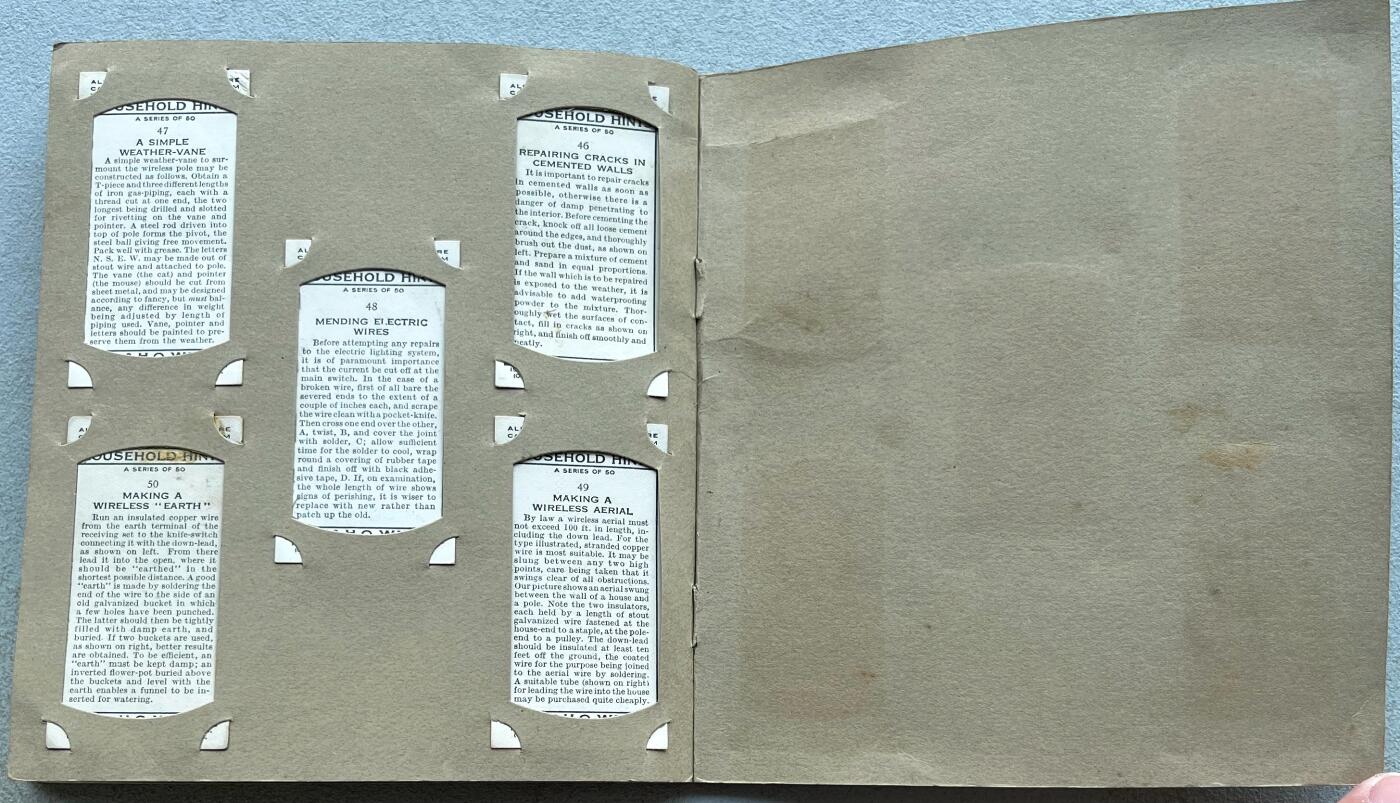 HOUSEHOLD HIN
A SERIES OF 50
47
A SIMPLE
WEATHER-VANE
A simple weather-vane to sur-
mount the wireless pole may be
constructed as follows. Obtain a
T-piece and three different lengths
of iron gas-piping, each with a
thread cut at one end, the two
longest being drilled and slotted
for rivetting on the vane and
pointer. A steel rod driven into
top of pole forms the pivot, the
steel ball giving free movement.
Pack well with grease. The letters
N. S. E. W. may be made out of
stout wire and attached to pole.
The vane (the cat) and pointer
(the mouse) should be cut from
sheet metal, and may be designed
according to fancy, but must bal-
ance, any difference in weight
being adjusted by length of
piping used. Vane, pointer and
letters should be painted to pre-
serve them from the weather.
OUSEHOLD HIN
A SERIES OF 50
50
MAKING A
WIRELESS "EARTH"
Run an insulated copper wire
from the earth terminal of the
receiving set to the knife-switch
connecting it with the down-lead,
as shown on left. From there
lead it into the open, where it
should be "earthed" in the
shortest possible distance. A good
"earth" is made by soldering the
end of the wire to the side of an
old galvanized bucket in which
a few holes have been punched.
The latter should then be tightly
filled with damp earth, and
buried. If two buckets are used,
as shown on right, better results
are obtained. To be efficient, an
"earth" must be kept damp; an
inverted flower-pot buried above
the buckets and level with the
earth enables a funnel to be in-
serted for watering.
OUSEHOLD HIN
A SERIES OF 50
48
MENDING ELECTRIC
WIRES
Before attempting any repairs
to the electric lighting system,
it is of paramount importance
that the current be cut off at the
main switch. In the case of a
broken wire, first of all bare the
severed ends to the extent of a
couple of inches each, and scrape
the wire clean with a pocket-knife.
Then cross one end over the other,
A, twist, B, and cover the joint
with solder, C; allow sufficient
time for the solder to cool, wrap
round a covering of rubber tape
and finish off with black adhe-
sive tape, D. If, on examination,
the whole length of wire shows
signs of perishing, it is wiser to
replace with new rather than
patch up the old.
OUSEHOLD HIN
A SERIES OF 50
46
REPAIRING CRACKS IN
CEMENTED WALLS
It is important to repair cracks
in cemented walls as soon as
possible, otherwise there is a
danger of damp penetrating to
the interior. Before cementing the
crack, knock off all loose cement
around the edges, and thoroughly
brush out the dust, as shown on
left. Prepare a mixture of cement
and sand in equal proportions.
If the wall which is to be repaired
is exposed to the weather, it is
advisable to add waterproofing
powder to the mixture. Thor-
oughly wet the surfaces of con-
tact, fill in cracks as shown on
right, and finish off smoothly and
neatly.
OUSEHOLD HIN
A SERIES OF 50
49
MAKING A
WIRELESS AERIAL
By law a wireless aerial must
not exceed 100 ft. in length, in-
cluding the down lead. For the
type illustrated, stranded copper
wire is most suitable. It may be
slung between any two high
points, care being taken that it
swings clear of all obstructions.
Our picture shows an aerial swung
between the wall of a house and
a pole. Note the two insulators,
each held by a length of stout
galvanized wire fastened at the
house-end to a staple, at the pole-
end to a pulley. The down-lead
should be insulated at least ten
feet off the ground, the coated
wire for the purpose being joined
to the aerial wire by soldering.
A suitable tube (shown on right)
for leading the wire into the house
may be purchased quite cheaply.